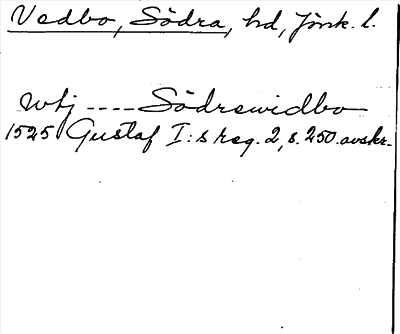 Vedbo, Södra, hd, Jönk. l.
utj ---- Södrewidbo
1525 Gustaf I:s reg. 2, s. 250. avskr.